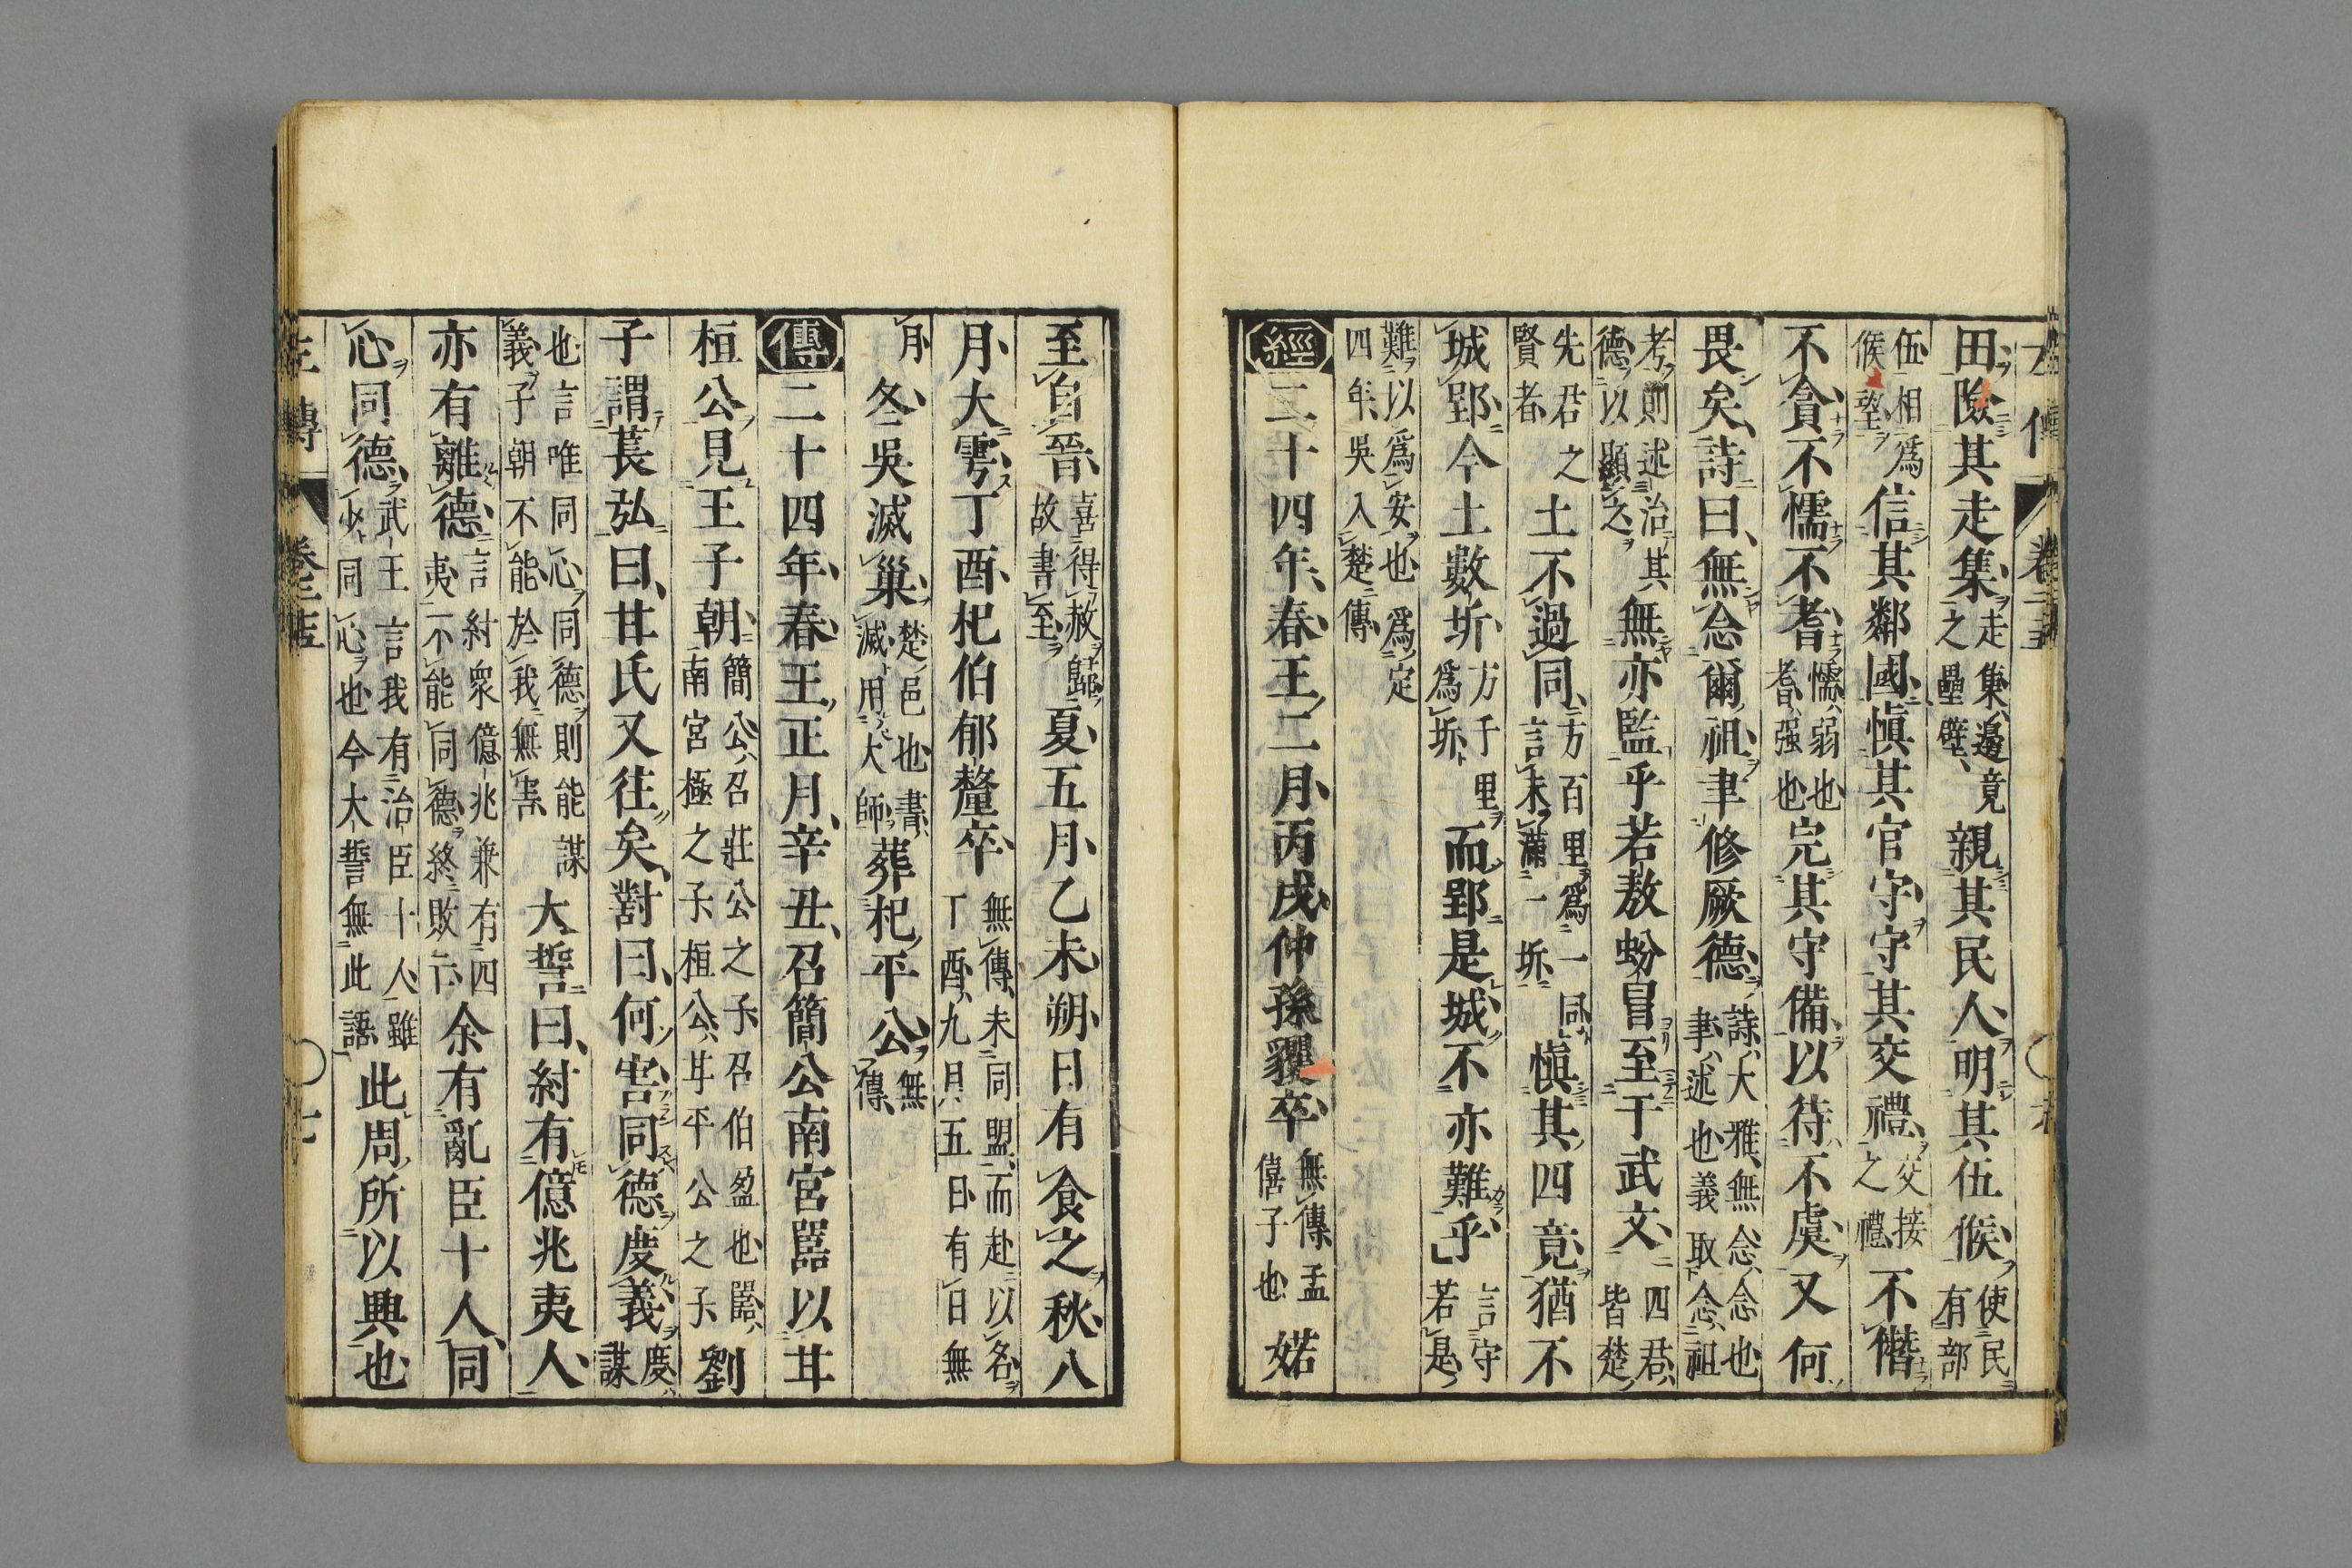 左傳 卷二十五
田險其走集走集邊竟之壘壁親其民人明其伍候使民有部
伍相爲候望信其鄰國愼其官守守其交禮交接之禮不僭
不貪不懦不耆懦弱也耆强也完其守備以待不虞又何
畏矣詩曰無念爾祖聿修厥德詩大雅無念念也聿述也義取念祖
考則述治其德以顯之無亦監乎若敖蚡冒至于武文四君皆楚
先君之賢者土不過同方百里爲一同言未滿一圻愼其四竟猶不
城郢今土數圻方千里爲圻而郢是城不亦難乎言守若是
難以爲安也爲定四年吳入楚傳
經二十四年春王二月丙戌仲孫貜卒無傳孟僖子也婼
至自晉喜得赦歸故書至夏五月乙未朔日有食之秋八
月大雩丁酉杞伯郁釐卒無傳未同盟而赴以名丁酉九月五日有日無
月冬吳滅巢楚邑也書滅用大師葬杞平公無傳
傳二十四年春王正月辛丑召簡公南宮嚚以甘
桓公見王子朝簡公召莊公之子召伯盈也嚚南宮極之子桓公甘平公之子劉
子謂萇弘曰甘氏又往矣對曰何害同德度義度謀
也言唯同心同德則能謀義子朝不能於我無害大誓曰紂有億兆夷人
亦有離德言紂衆億兆兼有四夷不能同德終敗亡余有亂臣十人同
心同德武王言我有治臣十人雖少同心也今大誓無此語此周所以興也
左傳 卷二十五 七